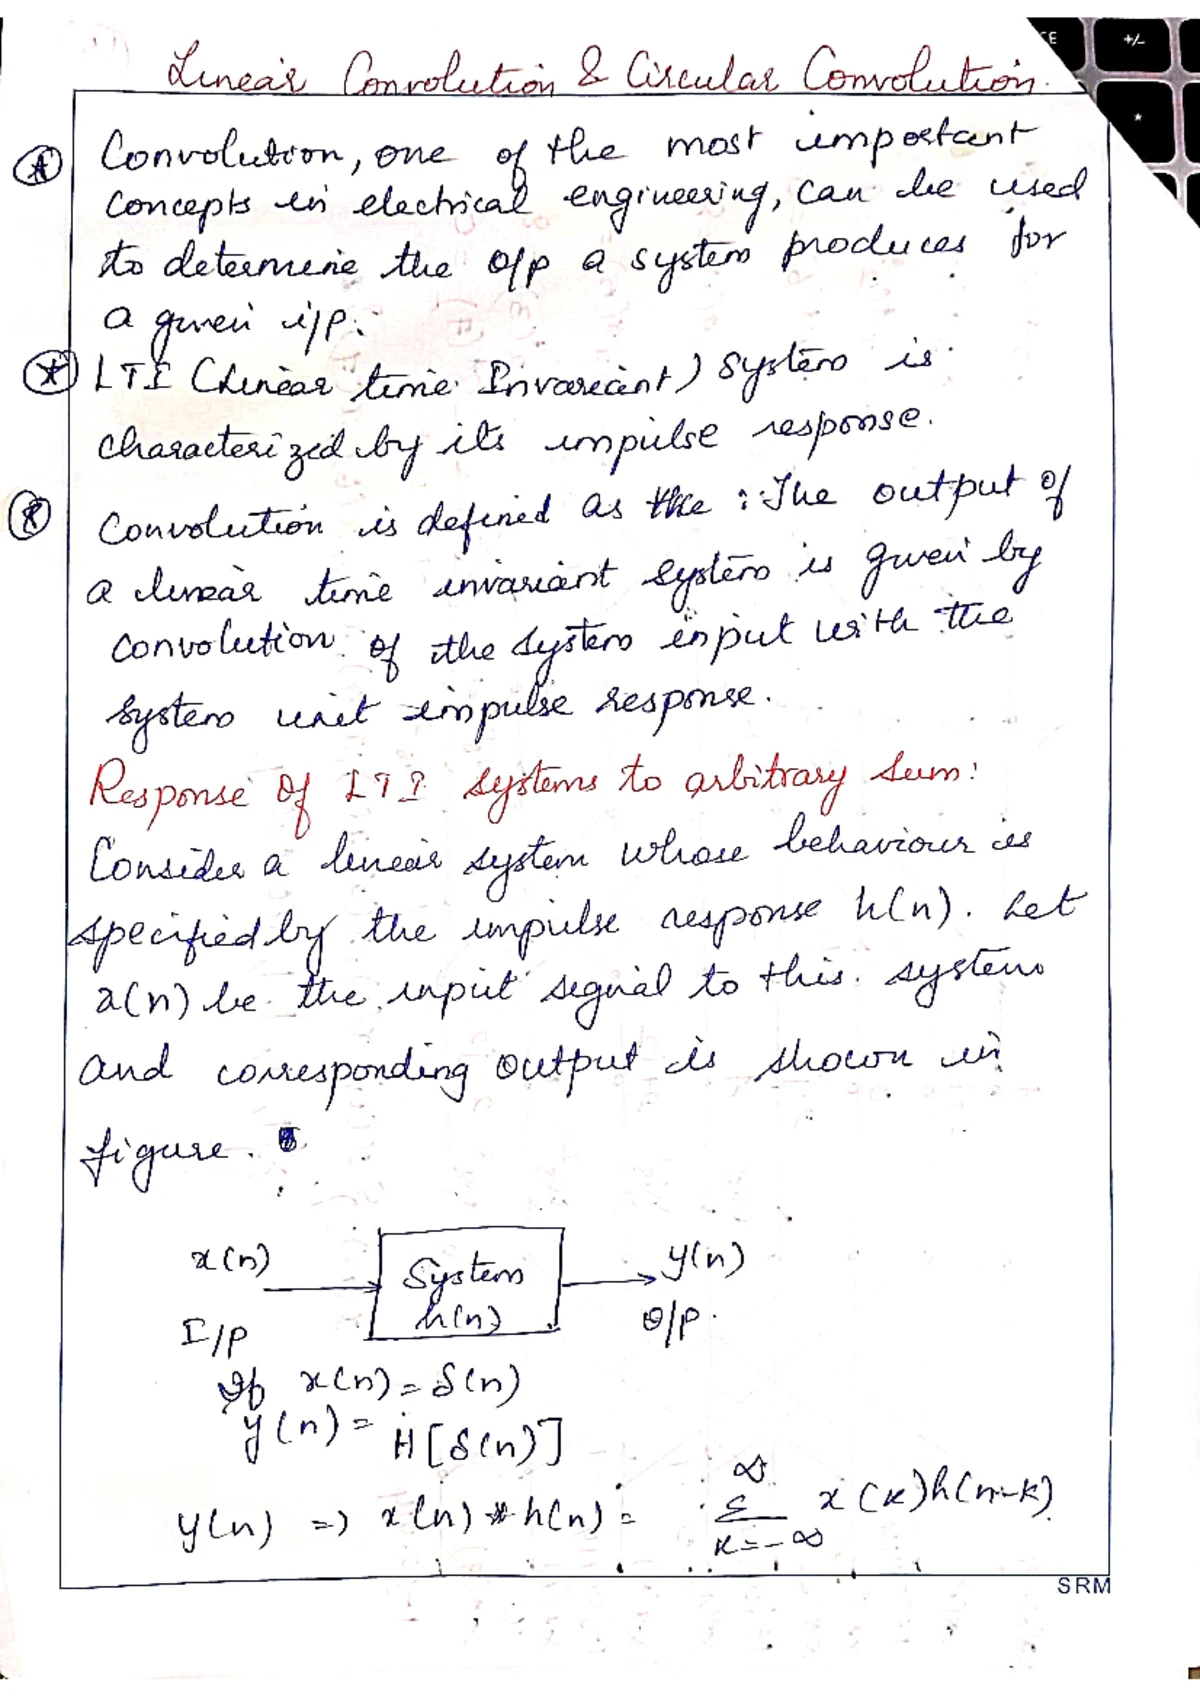 Linear Convolution & Circular Convolution.
CE
+/-
*
Convolution, one of the most important
concepts in electrical engineering, can be used
to determine the o/p a system produces for
a given i/p.
LTI (Linear time Invariant) system is
characterized by its impulse response.
Convolution is defined as the : The output of
a linear time invariant system is given by
convolution of the system input with the
system unit impulse response.
Response of LTI systems to arbitrary sum:
Consider a linear system whose behaviour is
specified by the impulse response h(n). Let
x(n) be the input signal to this system
and corresponding output is shown in
figure.
x(n) System y(n)
h(n)
I/P O/P.
If x(n) = δ(n)
y(n) = H[δ(n)]
y(n) => x(n) * h(n) = ∞ Σ k=-∞ x(k)h(n-k)
SRM